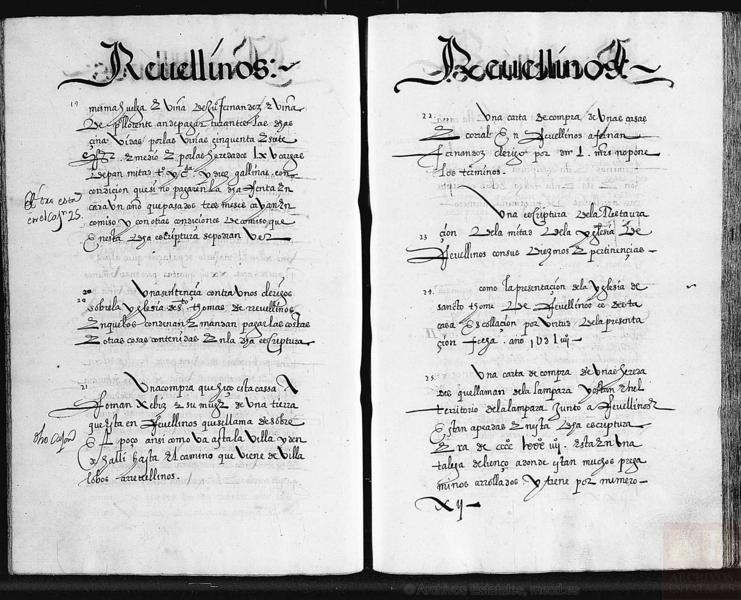 Reuellinos:~
19
misma huelga E Viña de Juº fernandez E Viña
De plloçente an de pagar durante las dhas
çinco Vidas por las Viñas cinquenta E siete
E medio E por las heredades lx Vcargas
De pan mitad tº y cda y diez gallinas con
condicion que si no pagaren la dha Renta En
cada Vn año que pasados tres meses cayan En
comiso y con otras condiciones De comiso que
En esta dha escriptura se podran Ver
Otra esta en el caj n 25.
20
Una sentencia contra Unos clerigos
sobre la yglesia de sto thomas de reuellinos
En que los condenan E mandan pagar las costas
E otras cosas contenidas En la dha escriptura
21
Una compra que hiço esta cassa A
Roman Xebiz E su muger de Una tierra
que esta en Reuellinos que se llama de sobre
El poço ansi como Va asta la Villa y den
de halli hasta El camino que Viene de Villa
lobos a reuellinos.
otro cajon
Reuellinos
22
Una carta de compra de Unas casas
E corral En Reuellinos a fernan
Fernandez clerigo por dm l mrs no pone
los terminos.
23
Una escriptura De la Restaura
çion De la mitad De la yglesia De
Reuellinos con sus Diezmos E pertinençias
24
como la presentaçion de la yglesia de
sancto thome De Reuellinos es de esta
casa Es collaçion por Virtud De la presenta
çion fecha. año 1551
25
Una carta de compra de Unas hereda
des que llaman de la lampara y estan En el
territorio de la lampara Junto a Reuellinos
Estan apeadas En esta Dha escriptura
Era de cccc lxxx iiij. Esta En Una
talega de lienço a donde estan muchos perga
minos arrollados y tiene por numero
Xij